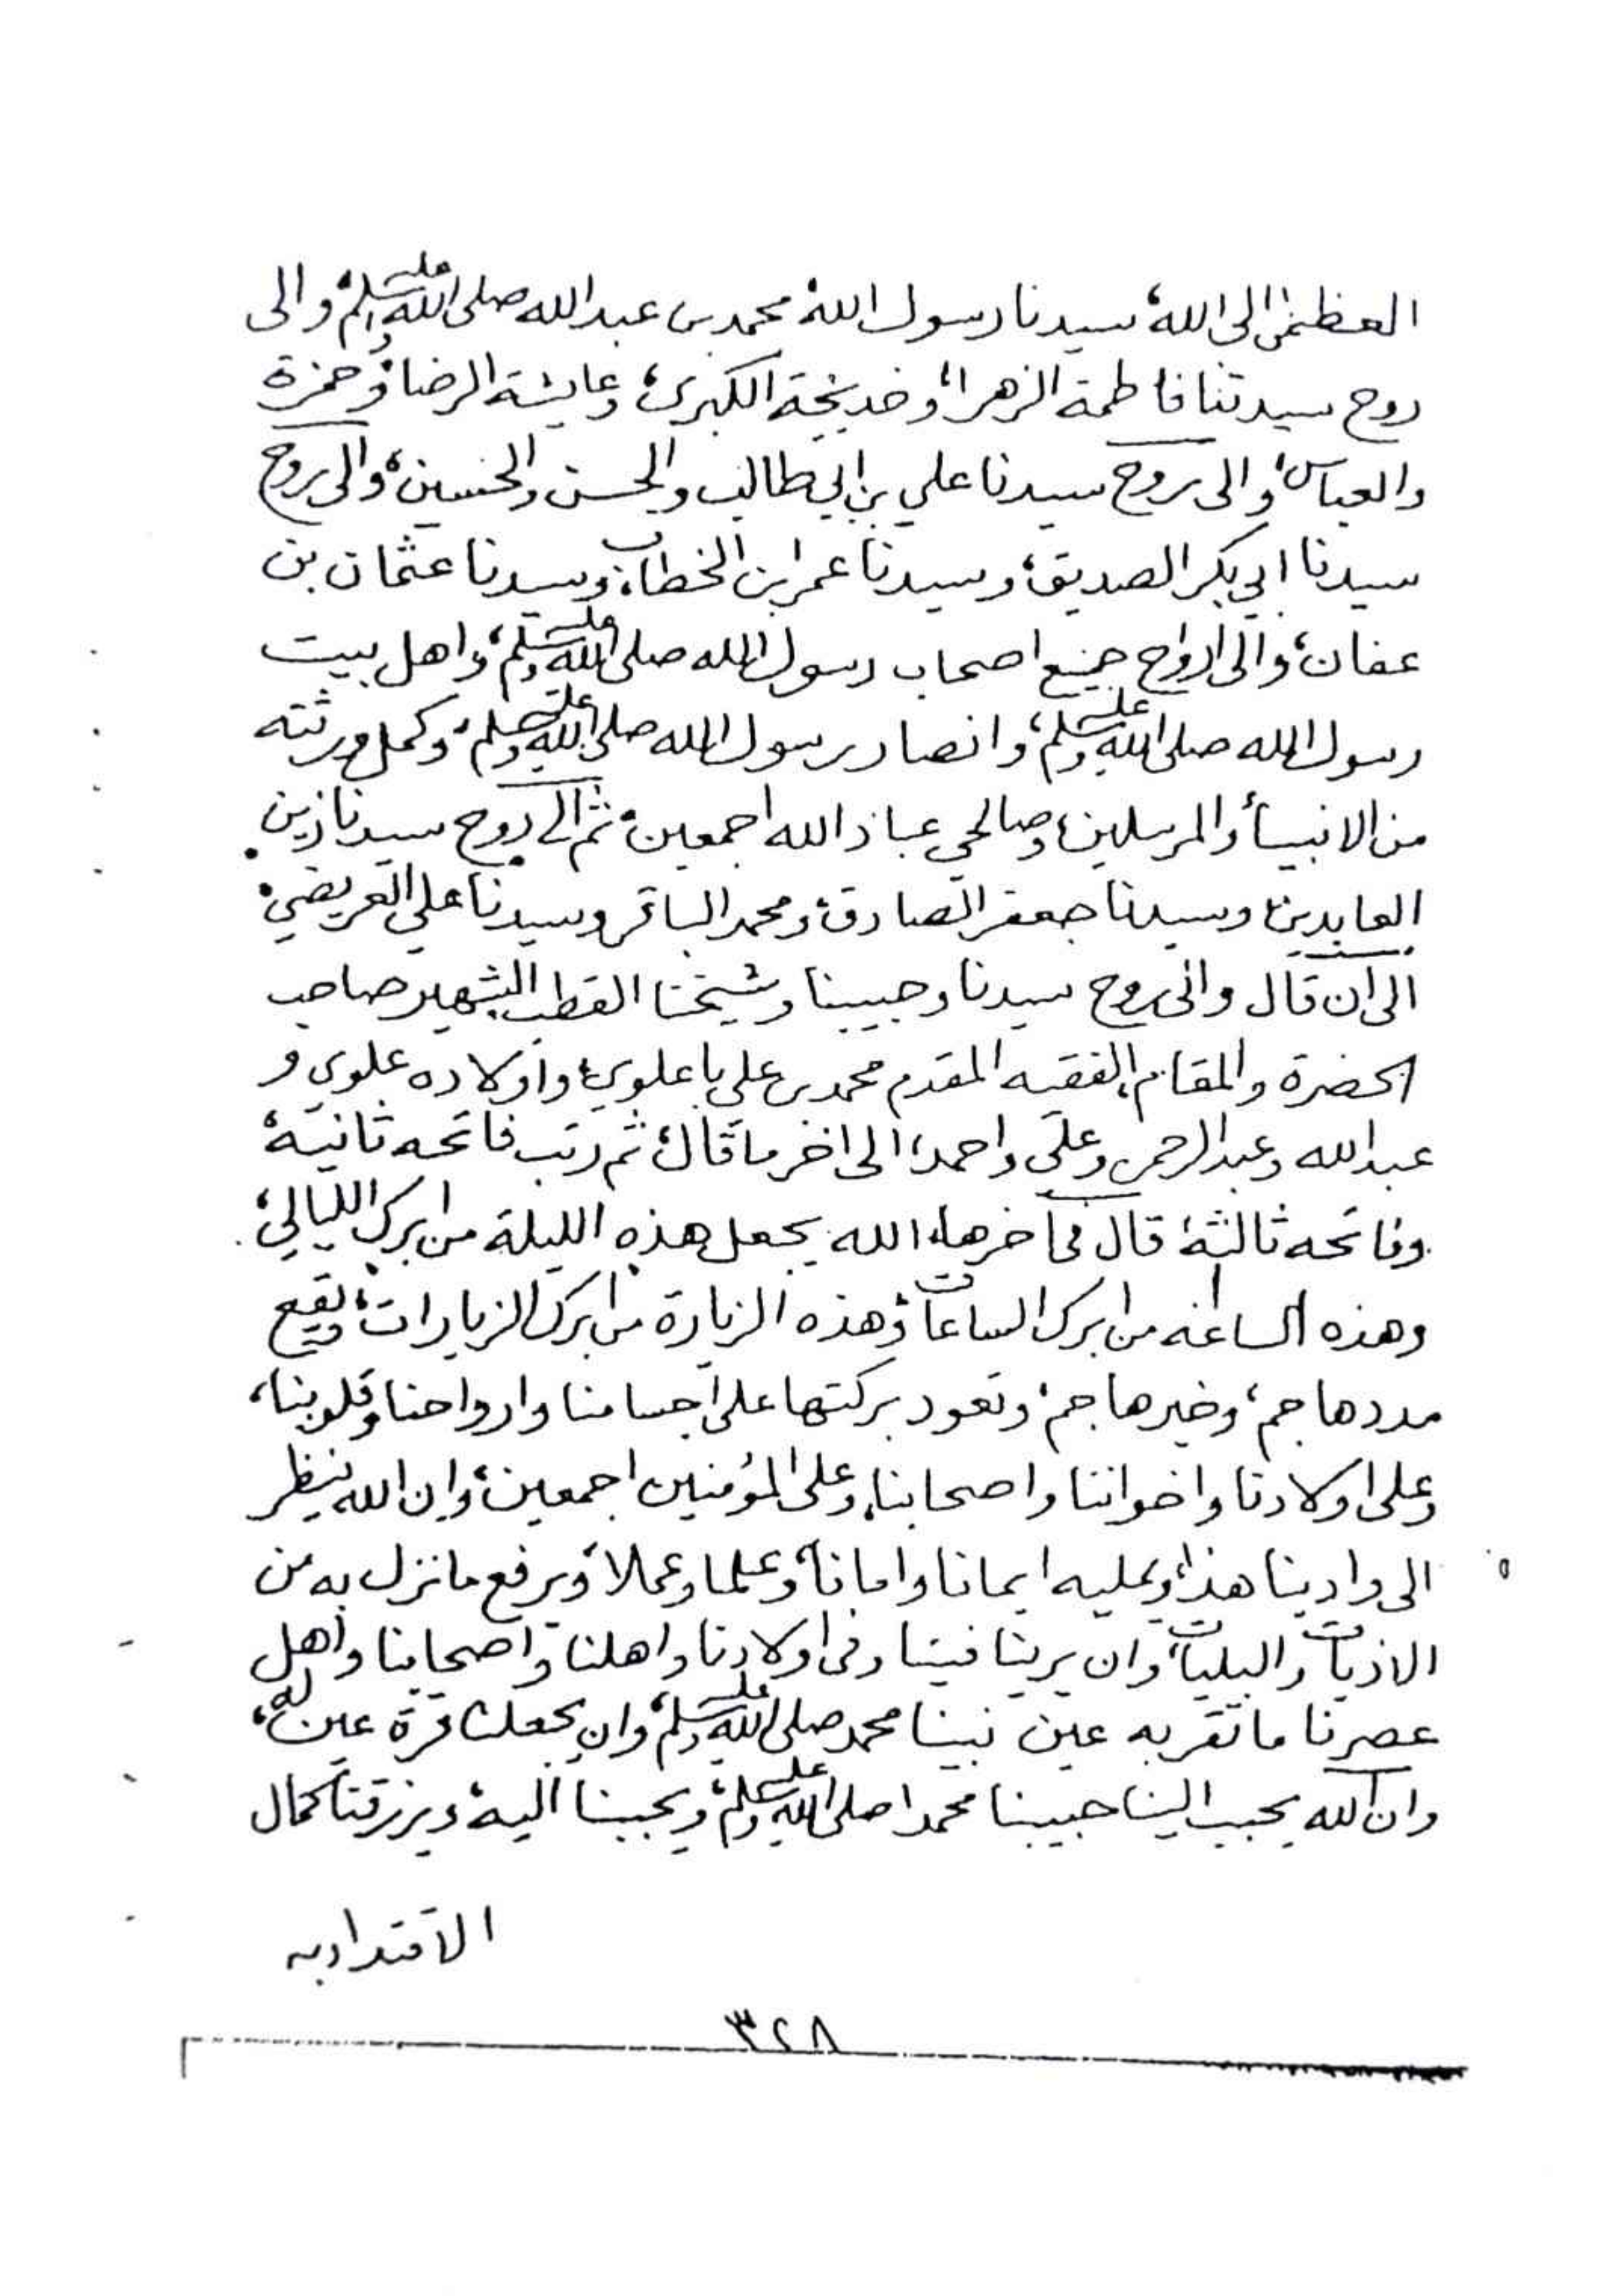 العظمى الى الله، سيدنا رسول الله محمد بن عبدالله صلى الله عليه وسلم، والى
روح سيدتنا فاطمة الزهراء، وخديجة الكبرى، وعايشة الرضا، وحمزة
والعباس، والى روح سيدنا علي بن ابي طالب والحسن والحسين، والى روح
سيدنا ابي بكر الصديق، وسيدنا عمر ابن الخطاب، وسيدنا عثمان بن
عفان، والى ارواح جميع اصحاب رسول الله صلى الله عليه وسلم، واهل بيت
رسول الله صلى الله عليه وسلم، وانصار رسول الله صلى الله عليه وسلم، وكمل ورثته
من الانبياء والمرسلين، وصالحي عباد الله اجمعين، ثم الى روح سيدنا زين
العابدين، وسيدنا جعفر الصادق، ومحمد الباقر وسيدنا علي العريضي،
الى ان قال والى روح سيدنا وحبيبنا وشيخنا القطب الشهير صاحب
الحضرة والمقام، الفقيه المقدم محمد بن علي باعلوي، واولاده علوي و
عبدالله وعبدالرحمن وعلي واحمد، الى اخر ما قال، ثم رتب فاتحه ثانية،
وفاتحه ثالثة، قال في اخرها، الله يجعل هذه الليلة من ابرك الليالي،
وهذه الساعه من ابرك الساعات، وهذه الزيارة من ابرك الزيارات، ويقع
مددها جم، وخيرها جم، وتعود بركتها على اجسامنا وارواحنا وقلوبنا،
وعلى اولادنا واخواننا واصحابنا، وعلى المؤمنين اجمعين، وان الله ينظر
الى وادينا هذا، ويمليه ايمانا وامانا، وعلما وعملا، ويرفع ما نزل به من
الاذيات والبليات، وان يرينا فينا وفي اولادنا واهلنا واصحابنا واهل
عصرنا ما تقر به عين نبينا محمد صلى الله عليه وسلم، وان يجعلنا قرة عين له،
وان الله يحبب الينا حبيبنا محمدا صلى الله عليه وسلم، ويحببنا اليه، ويرزقنا كمال
الاقتدا به
٣٢٨